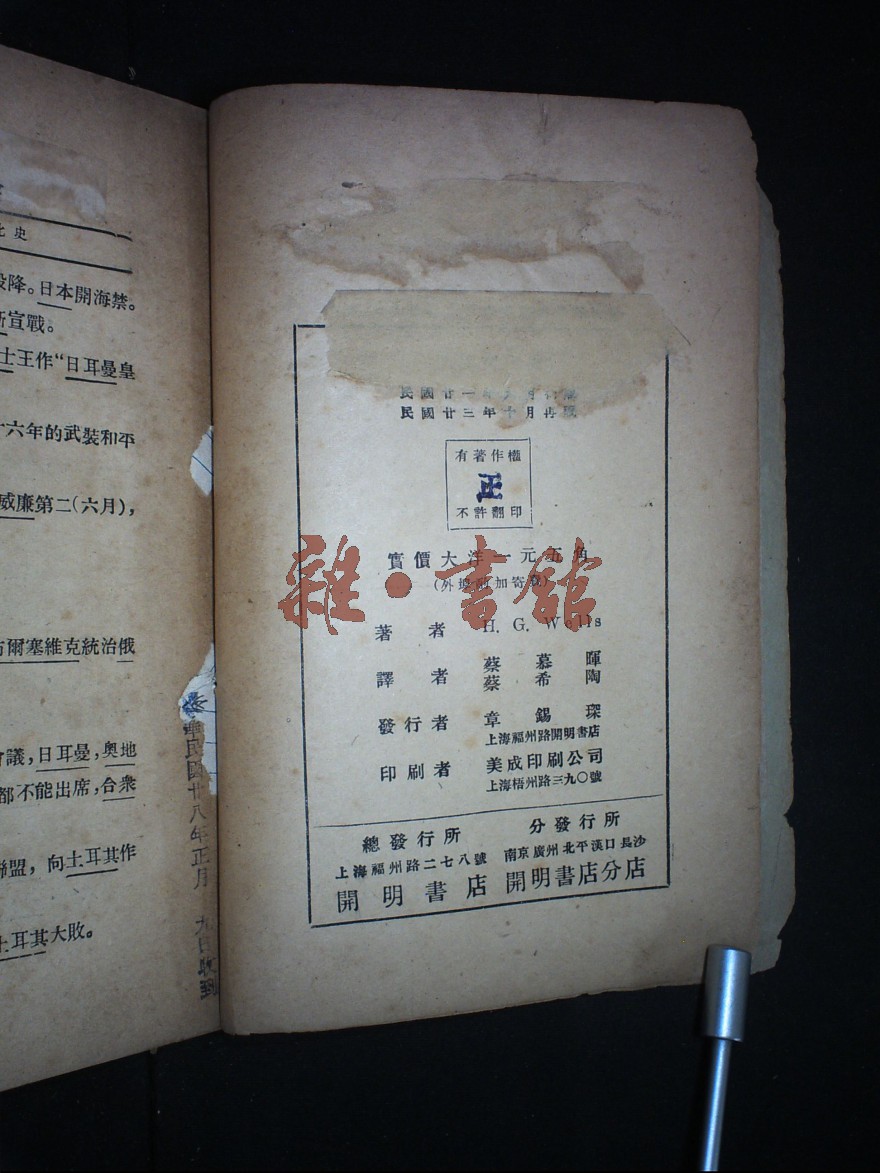 史
降。日本開海禁。
宣戰。
士王作“日耳曼皇
十六年的武裝和平
威廉第二(六月),
爾塞維克統治俄
會議,日耳曼,奥地
都不能出席,合衆
聯盟,向土耳其作
土耳其大敗。
民國廿八年正月
九日收到
民國廿一年
民國廿三年十月再版
有著作權
正
不許翻印
實價大洋一元五角
(外埠酌加寄費)
著者 H. G. Wells
譯者 蔡慕暉
蔡希陶
發行者 章錫琛
上海福州路開明書店
印刷者 美成印刷公司
上海梧州路三九〇號
總發行所 分發行所
上海福州路二七八號 南京廣州北平漢口長沙
開明書店 開明書店分店
雜·書館